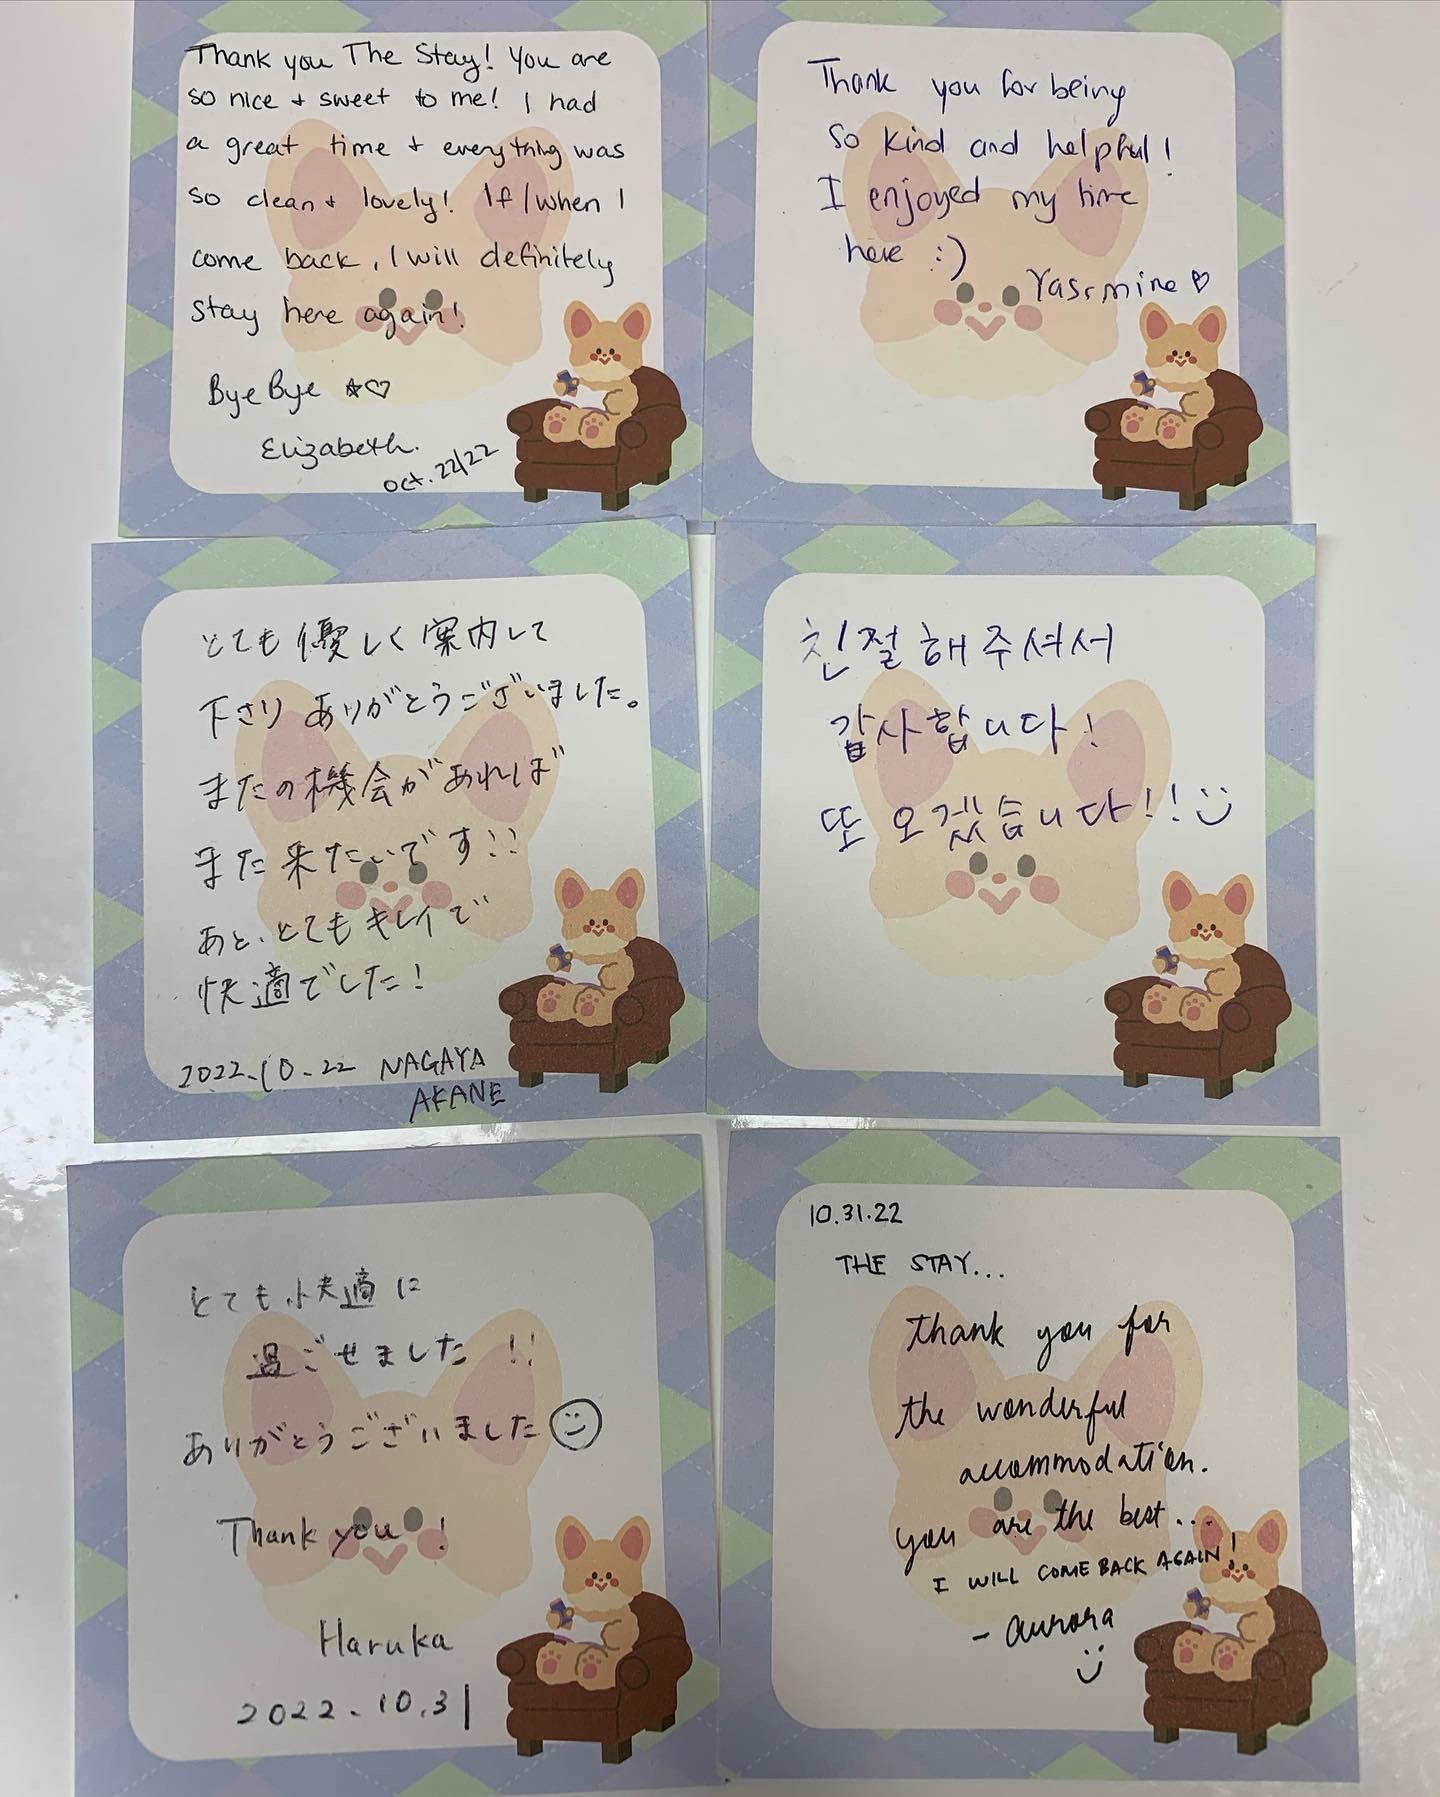 Thank you The Stay! You are
so nice + sweet to me! I had
a great time + everything was
so clean + lovely! If/when I
come back, I will definitely
stay here again!
Bye Bye ☆♡
Elizabeth.
Oct. 22/22
Thank you for being
so kind and helpful!
I enjoyed my time
here :)
♡
とても優しく案内して
下さりありがとうございました。
またの機会があれば
また来たいです!!
あと、とてもキレイで
快適でした!
2022.10.22 NAGAYA
AKANE
친절해주셔서
감사합니다!
또 오겠습니다!!
とても快適に
過ごせました!!
ありがとうございました
Thank you!
Haruka
2022.10.31
10.31.22
THE STAY...
thank you for
the wonderful
accommodation.
you are the best...
I WILL COME BACK AGAIN!
- aurora